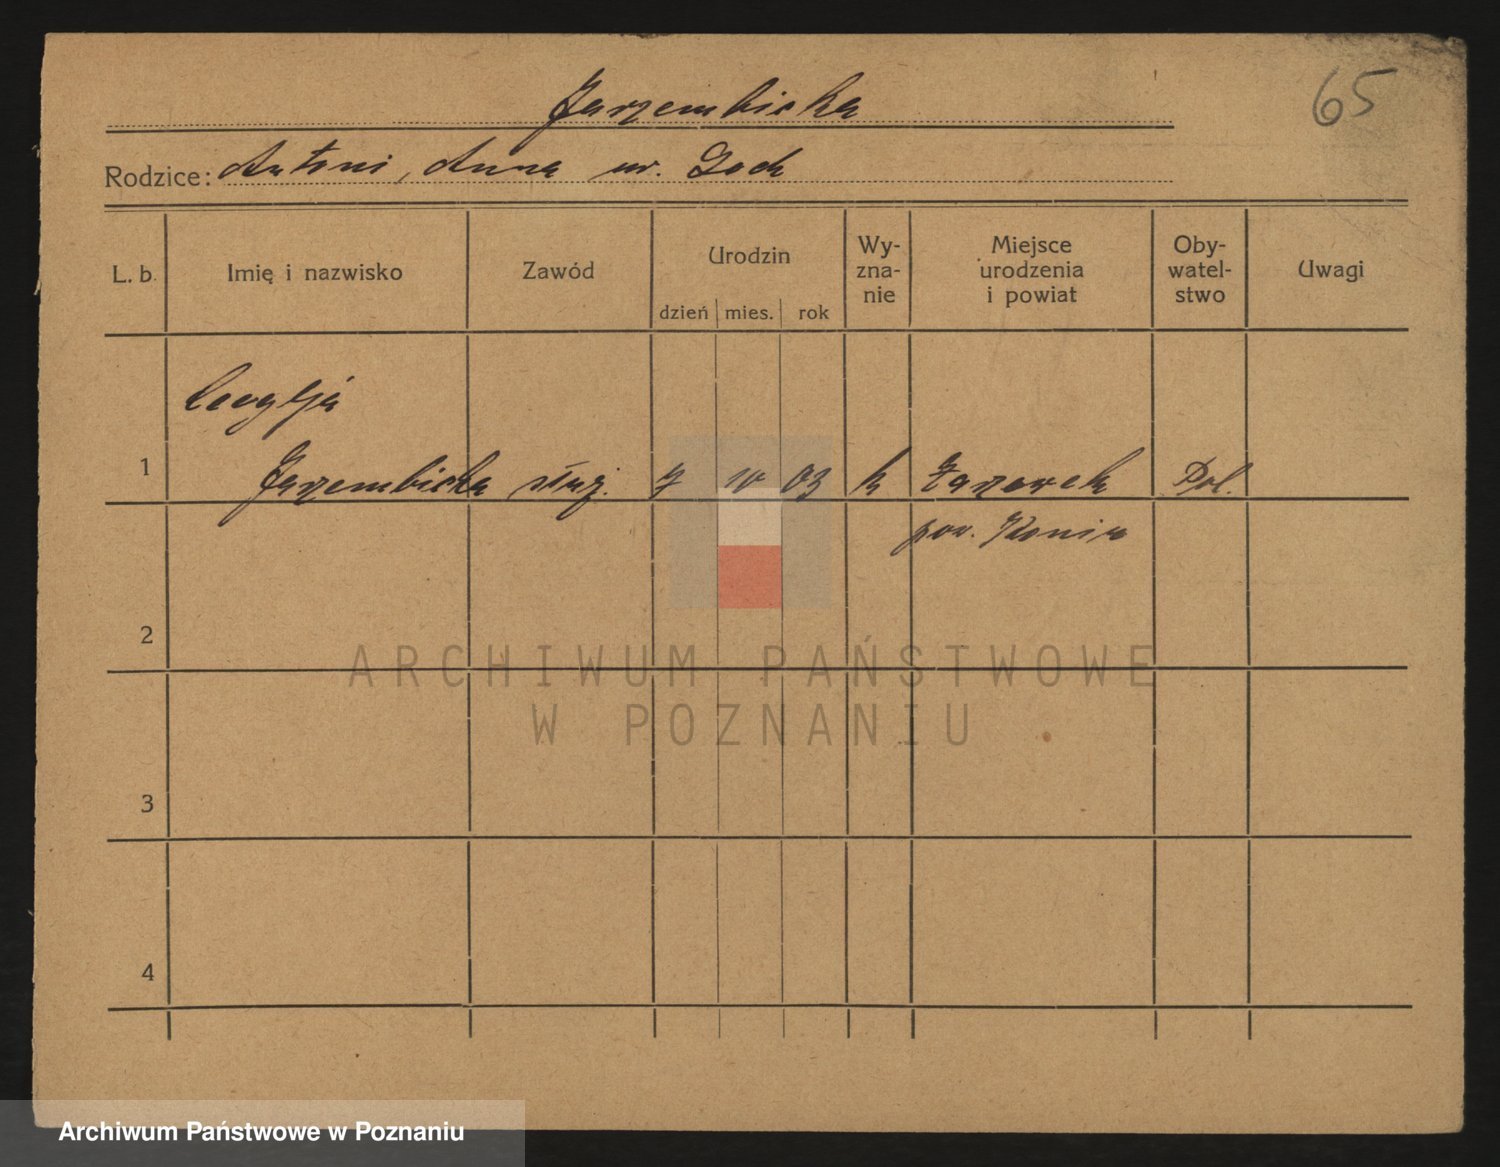 65
Jarzembicka
Rodzice: Antoni, Anna ur. Zoch
L. b. Imię i nazwisko Zawód Urodzin dzień mies. rok Wy-zna-nie Miejsce urodzenia i powiat Oby-watel-stwo Uwagi
1 Jarzembicka służ. 7 10 03 k Pol.
pow. Konin
2
3
4
ARCHIWUM PAŃSTWOWE
W POZNANIU
Archiwum Państwowe w Poznaniu